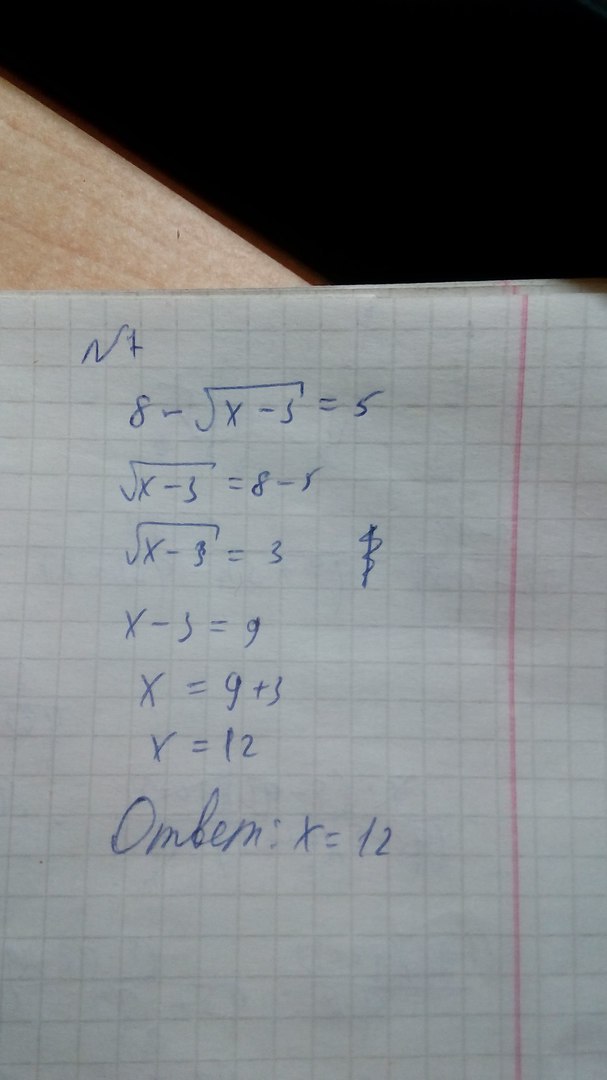 №7
8 - √(x - 3) = 5
√(x - 3) = 8 - 5
√(x - 3) = 3
x - 3 = 9
x = 9 + 3
x = 12
Ответ: x = 12